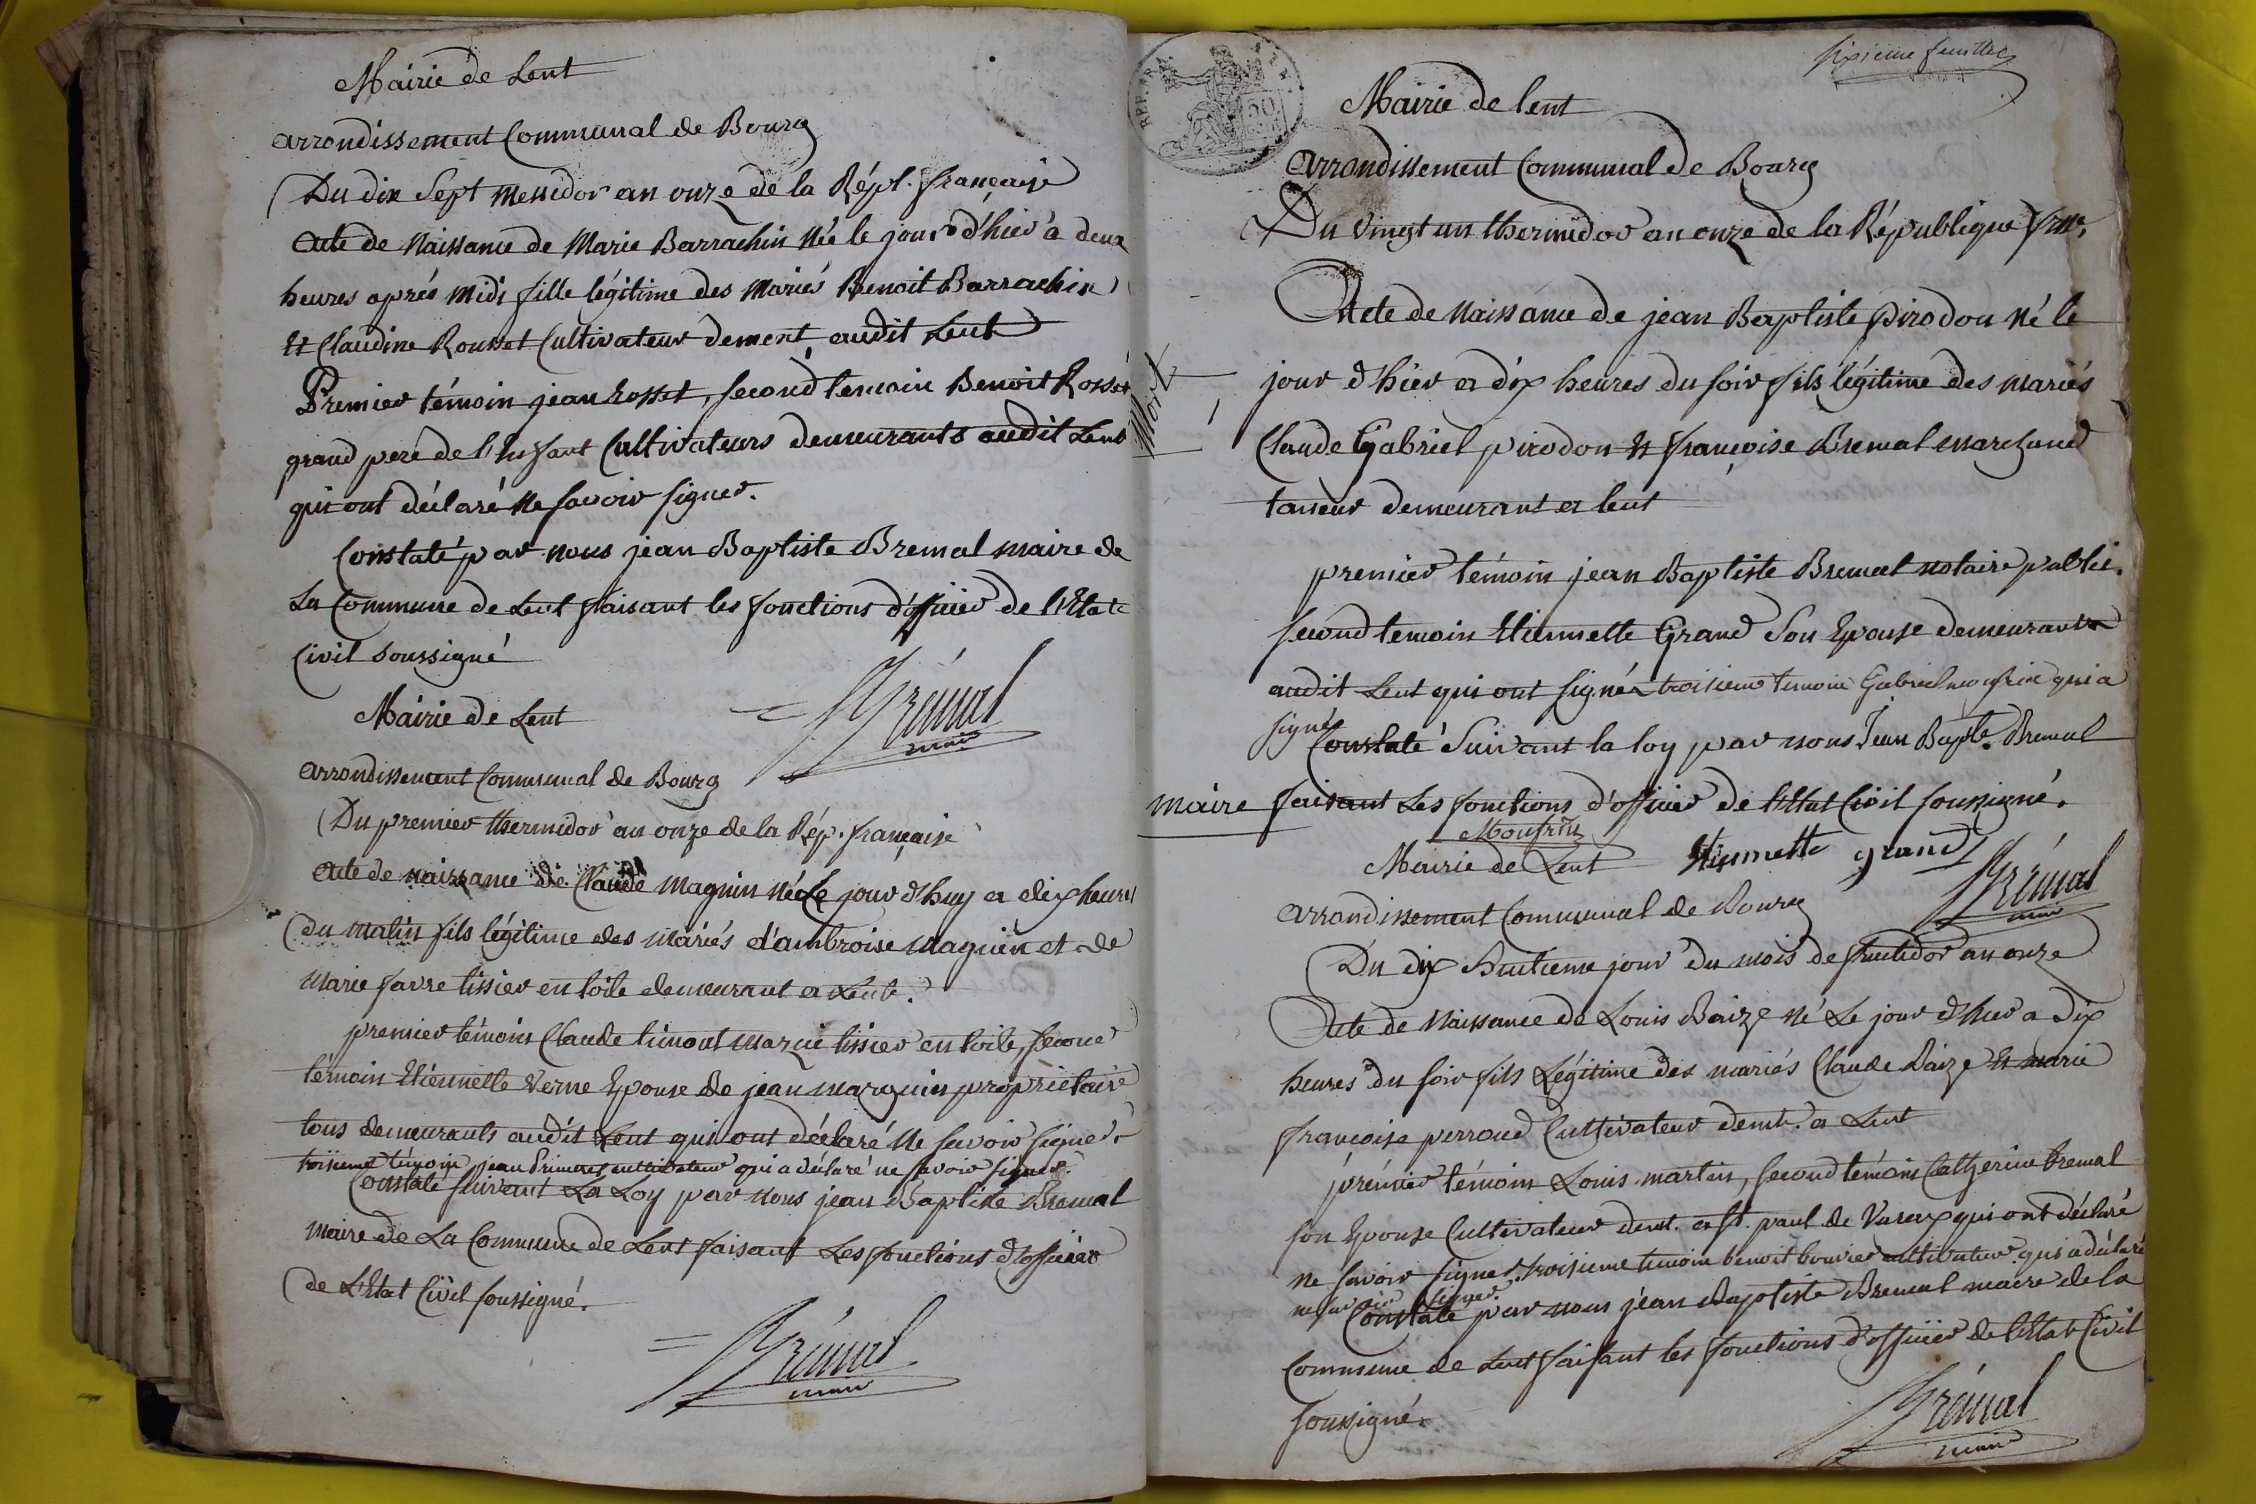 Mairie de Lent
arrondissement Communal de Bourg
Du dix Sept messidor an onze de la Répl. française
Acte de Naissance de Marie Barrachin Née le jour d'hier à deux
heures aprés midi fille légitime des Mariés Benoit Barrachin
Et Claudine Rousset Cultivateur demert. audit Lent
Premier témoin jean rosset, second temoin Benoit Rosset
grand pere de l'Enfant Cultivateurs demeurants audit Lent
qui ont déclaré ne savoir signer.
Constaté par nous jean Baptiste Bremal maire de
La Commune de Lent faisant les fonctions d'officier de l'Etat
Civil soussigné
Brémal
maire
Mairie de Lent
arrondissement Communal de Bourg
Du premier thermidor an onze de la Rép. française
Acte de naissance de Claude Magnin né Le jour d'huy a dix heures
du matin fils légitime des mariés d'ambroise magnien et de
marie favre tissier en toile demeurant a Lent.
premier témoin Claude marguin tissier en toile, second
témoin Etiennette Verne Epouse de jean marguin propriétaire
tous demeurants audit Lent qui ont déclaré ne savoir signer
troisieme témoin jean cultivateur qui a déclaré ne savoir signer.
Constaté suivant La Loy par nous jean Baptiste Bremal
maire de La Commune de Lent faisant Les fonctions d'officier
de L'Etat Civil soussigné.
Brémal
maire
sixième feuillet
REP. FRA
50
Mairie de lent
arrondissement Communal de Bourg
Du vingt un thermidor an onze de la République frse.
Acte de Naissance de jean Baptiste pirodon né le
jour d'hier a dix heures du soir fils légitime des mariés
Claude Gabriel pirodon Et françoise Bremal marchand
taneur demeurant a lent
mort
premier témoin jean Baptiste Bremal notaire public.
second temoin Etiennette Grand son Epouse demeurants
audit Lent qui ont signés troisieme temoin Gabriel monfrin qui a
signé
Constaté suivant la loy par nous Jean Bapte. Bremal
maire faisant Les fonctions d'officier de l'Etat Civil soussigné.
Monfrin
Etiennette grand
Brémal
maire
Mairie de Lent
arrondissement Communal de Bourg
Du dix huitieme jour du mois de fructidor an onze
Acte de Naissance de Louis Baize né Le jour d'hier a dix
heures du soir fils Légitime des mariés Claude Baize Et marie
françoise perroud Cultivateur demt. a Lent
prémier témoin Louis martin, second témoin Catherine bremal
son Epouse Cultivateur demt. a st. paul de Varax qui ont déclaré
ne savoir signer. troisieme temoin benoit bouvier cultivateur qui a déclaré
ne savoir signer.
Constaté par nous jean Baptiste Bremal maire de la
Commune de Lent faisant les fonctions d'officier de l'Etat Civil
soussigné.
Brémal
maire